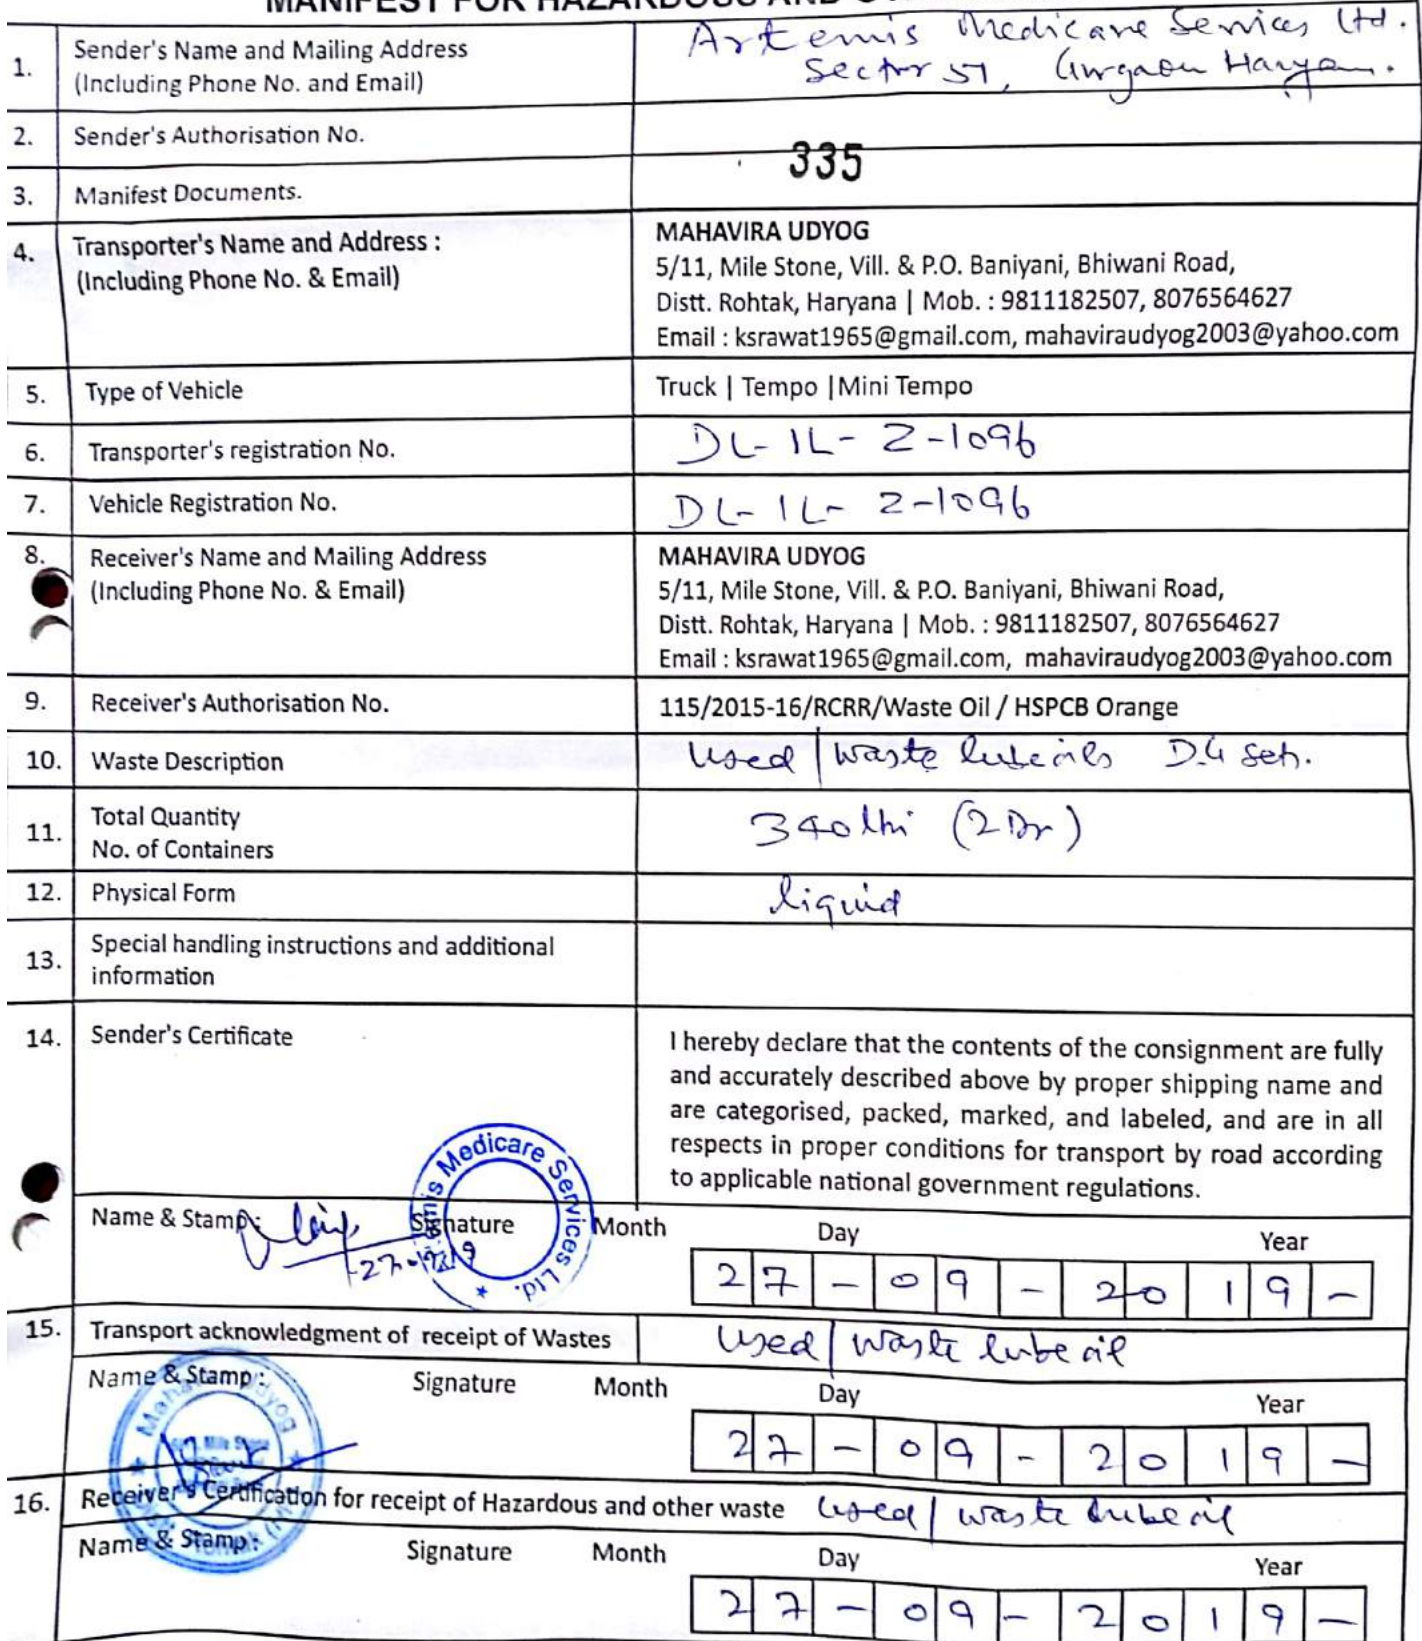 MANIFEST FOR HAZARDOUS AND
1. Sender's Name and Mailing Address
(Including Phone No. and Email)
Artemis Medicare Services Ltd.
Sector 51, Gurgaon Haryana.
2. Sender's Authorisation No.
335
3. Manifest Documents.
4. Transporter's Name and Address :
(Including Phone No. & Email)
MAHAVIRA UDYOG
5/11, Mile Stone, Vill. & P.O. Baniyani, Bhiwani Road,
Distt. Rohtak, Haryana | Mob. : 9811182507, 8076564627
Email : ksrawat1965@gmail.com, mahaviraudyog2003@yahoo.com
5. Type of Vehicle
Truck | Tempo |Mini Tempo
6. Transporter's registration No.
DL-1L-Z-1096
7. Vehicle Registration No.
DL-1L-Z-1096
8. Receiver's Name and Mailing Address
(Including Phone No. & Email)
MAHAVIRA UDYOG
5/11, Mile Stone, Vill. & P.O. Baniyani, Bhiwani Road,
Distt. Rohtak, Haryana | Mob. : 9811182507, 8076564627
Email : ksrawat1965@gmail.com, mahaviraudyog2003@yahoo.com
9. Receiver's Authorisation No.
115/2015-16/RCRR/Waste Oil / HSPCB Orange
10. Waste Description
Used/waste lube oils D.G Set.
11. Total Quantity
No. of Containers
340 ltr (2 Dr)
12. Physical Form
liquid
13. Special handling instructions and additional
information
14. Sender's Certificate
I hereby declare that the contents of the consignment are fully
and accurately described above by proper shipping name and
are categorised, packed, marked, and labeled, and are in all
respects in proper conditions for transport by road according
to applicable national government regulations.
Medicare Services Ltd.
Name & Stamp: Signature Month Day Year
27-09-2019-
15. Transport acknowledgment of receipt of Wastes
Used/waste lube oil
Name & Stamp : Signature Month Day Year
27-09-2019-
16. Receiver's Certification for receipt of Hazardous and other waste Used/waste lube oil
Name & Stamp : Signature Month Day Year
27-09-2019-